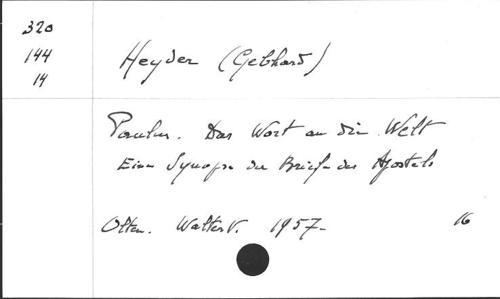 320
144
14
Heyder (Gebhard)
Paulus. Das Wort an die Welt
Eine Synopse der Briefe des Apostels
Olten. Walter V. 1957-
16